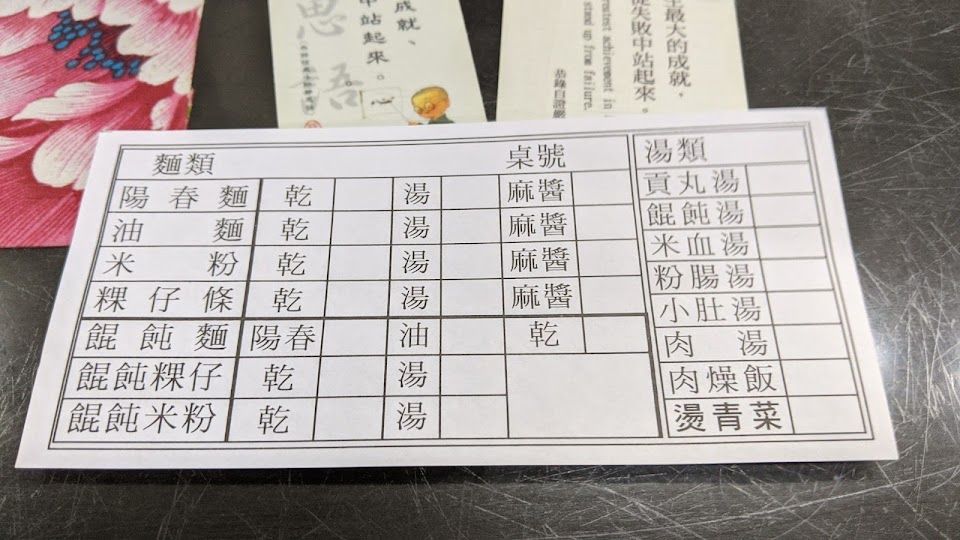 思
吾
成就、
中站起來。
最大的成就，
從失敗中站起來。
greatest achievement in
stand up from failure.
恭錄自證嚴
麵類 桌號
陽春麵 乾 湯 麻醬
油麵 乾 湯 麻醬
米粉 乾 湯 麻醬
粿仔條 乾 湯 麻醬
餛飩麵 陽春 油 乾
餛飩粿仔 乾 湯
餛飩米粉 乾 湯
湯類
貢丸湯
餛飩湯
米血湯
粉腸湯
小肚湯
肉湯
肉燥飯
燙青菜